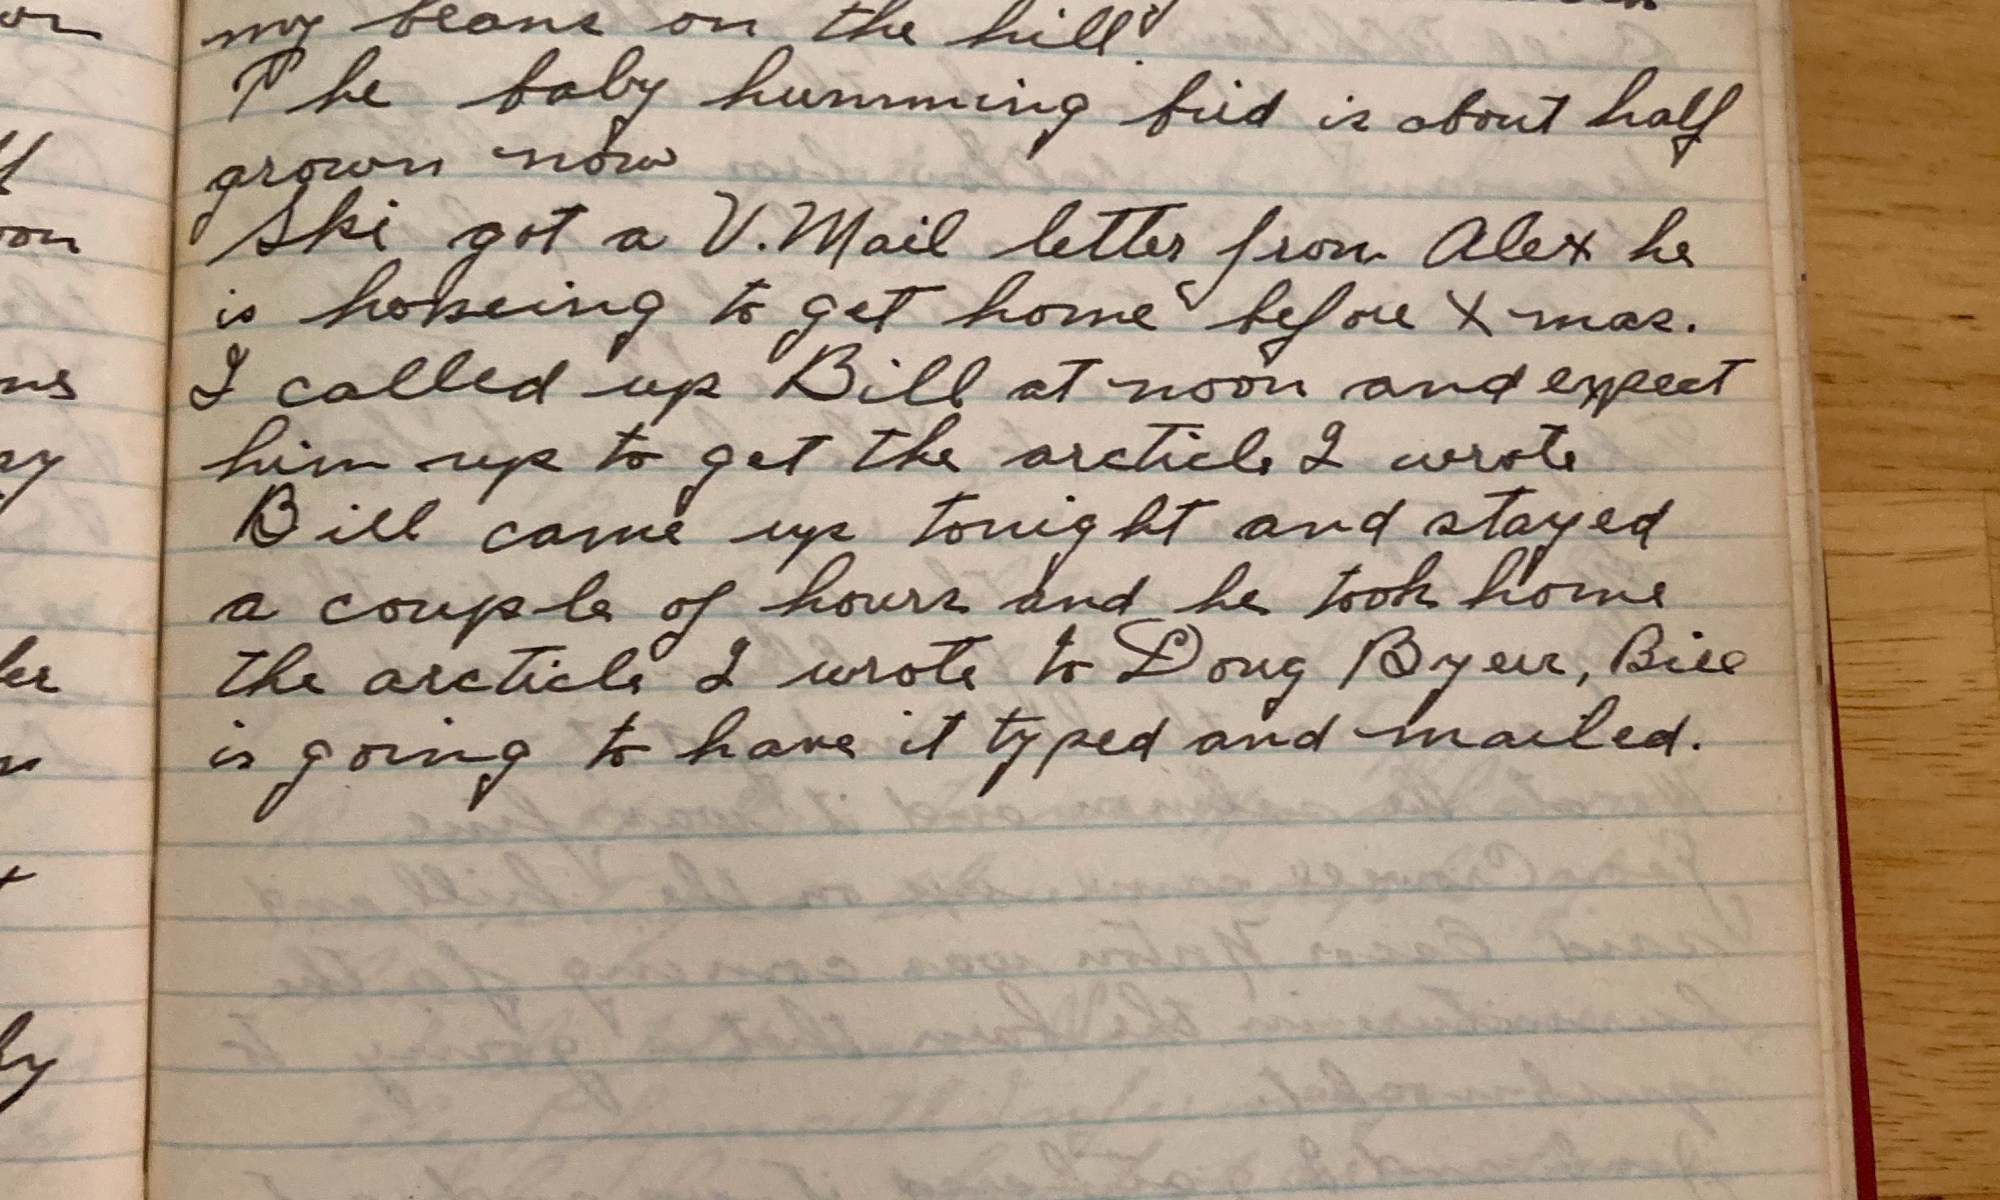 my beans on the hill.
The baby humming bird is about half
grown now
Ski got a V. Mail letter from Alex he
is hopeing to get home before Xmas.
I called up Bill at noon and expect
him up to get the arcticle I wrote
Bill came up tonight and stayed
a couple of hours and he took home
the arcticle I wrote to Doug Byers, Bill
is going to have it typed and mailed.